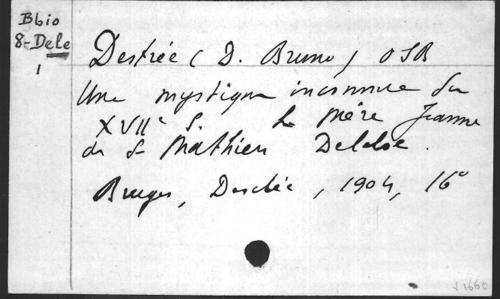 Bbio
8-Dele
1
Destrée (D. Bruno) OSB
Une mystique inconnue du
XVIIe S. La mère Jeanne
de S. Mathieu Deleloe.
Bruges, Desclée, 1904, 16°